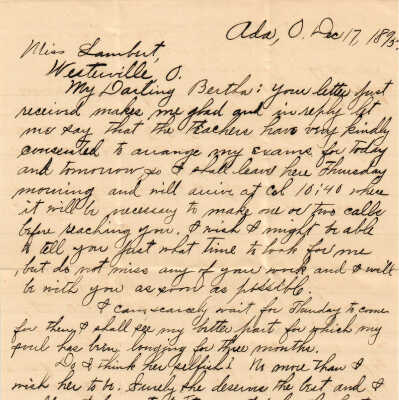 Ada, O. Dec 17, 1895.
Miss Lambert,
Westerville, O.
My Darling Bertha: your letter just
received makes me glad and in reply let
me say that the teachers have very kindly
consented to arrange my exams for today
and tomorrow so I shall leave here Thursday
morning and will arrive at Col 10:40 where
it will be necessary to make one or two calls
before reaching you. I wish I might be able
to tell you just what time to look for me
but do not miss any of your work and I will
be with you as soon as possible.
I can scarcely wait for Thursday to come
for then I shall see my better part for which my
soul has been longing for three months.
Do I think her selfish? No more than I
wish her to be. Surely she deserves the best and I